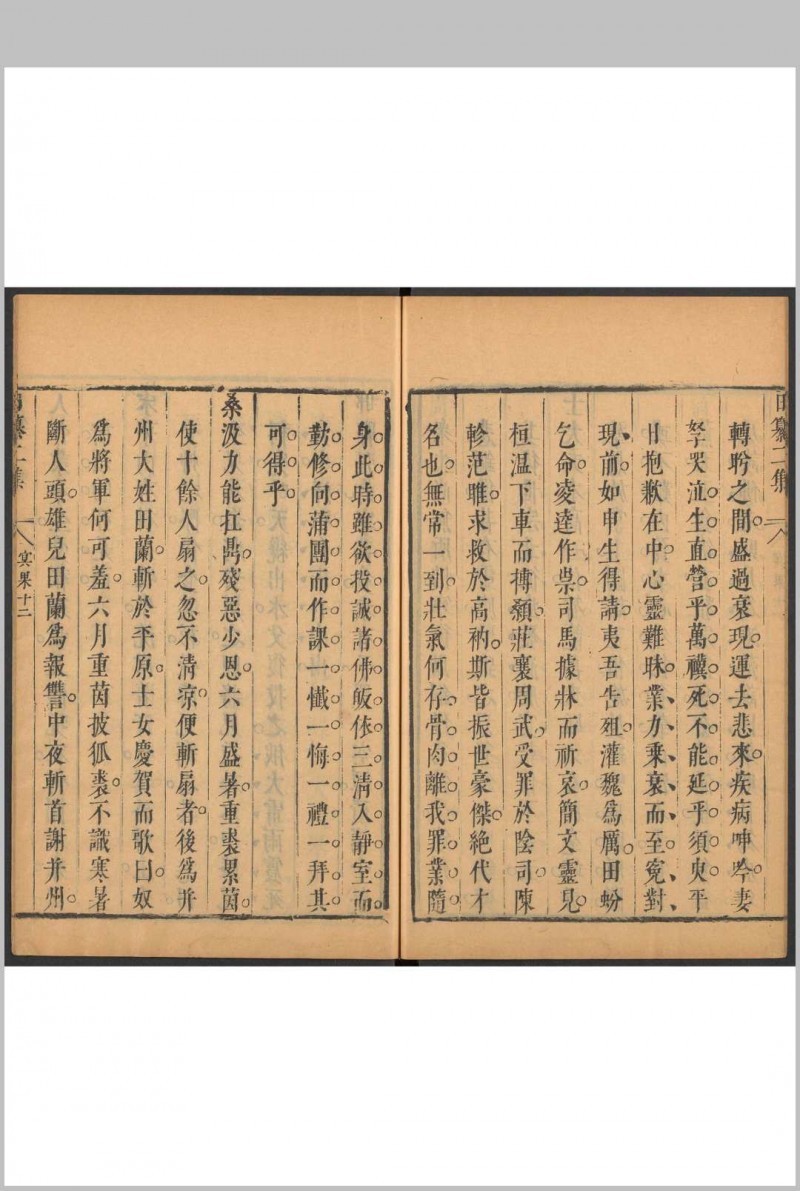 轉盻之間盛過衰現運去悲來疾病呻吟妻
孥哭泣生直營乎萬禩死不能延乎須臾平
日抱歉在中心靈難昧業力乗衰而至寃對
現前如申生得請夷吾告殂灌魏爲厲田蚡
乞命凌逹作祟司馬據牀而祈哀簡文靈見
桓温下車而摶顙莊襄周武受罪於陰司陳
軫范雎求救於高衲斯皆振世豪傑絶代才
名也無常一到壯氣何存骨肉離我罪業隨
身此時雖欲投誠諸佛皈依三清入靜室而
勤修向蒲團而作課一懴一悔一禮一拜其
可得乎
桑汲力能扛鼎殘惡少恩六月盛暑重裘累茵
使十餘人扇之忽不清凉便斬扇者後爲并
州大姓田蘭斬於平原士女慶賀而歌曰奴
爲將軍何可羞六月重茵披狐裘不識寒暑
斷人頭雄兒田蘭爲報讐中夜斬首謝并州
纂二集
八
冥果十二